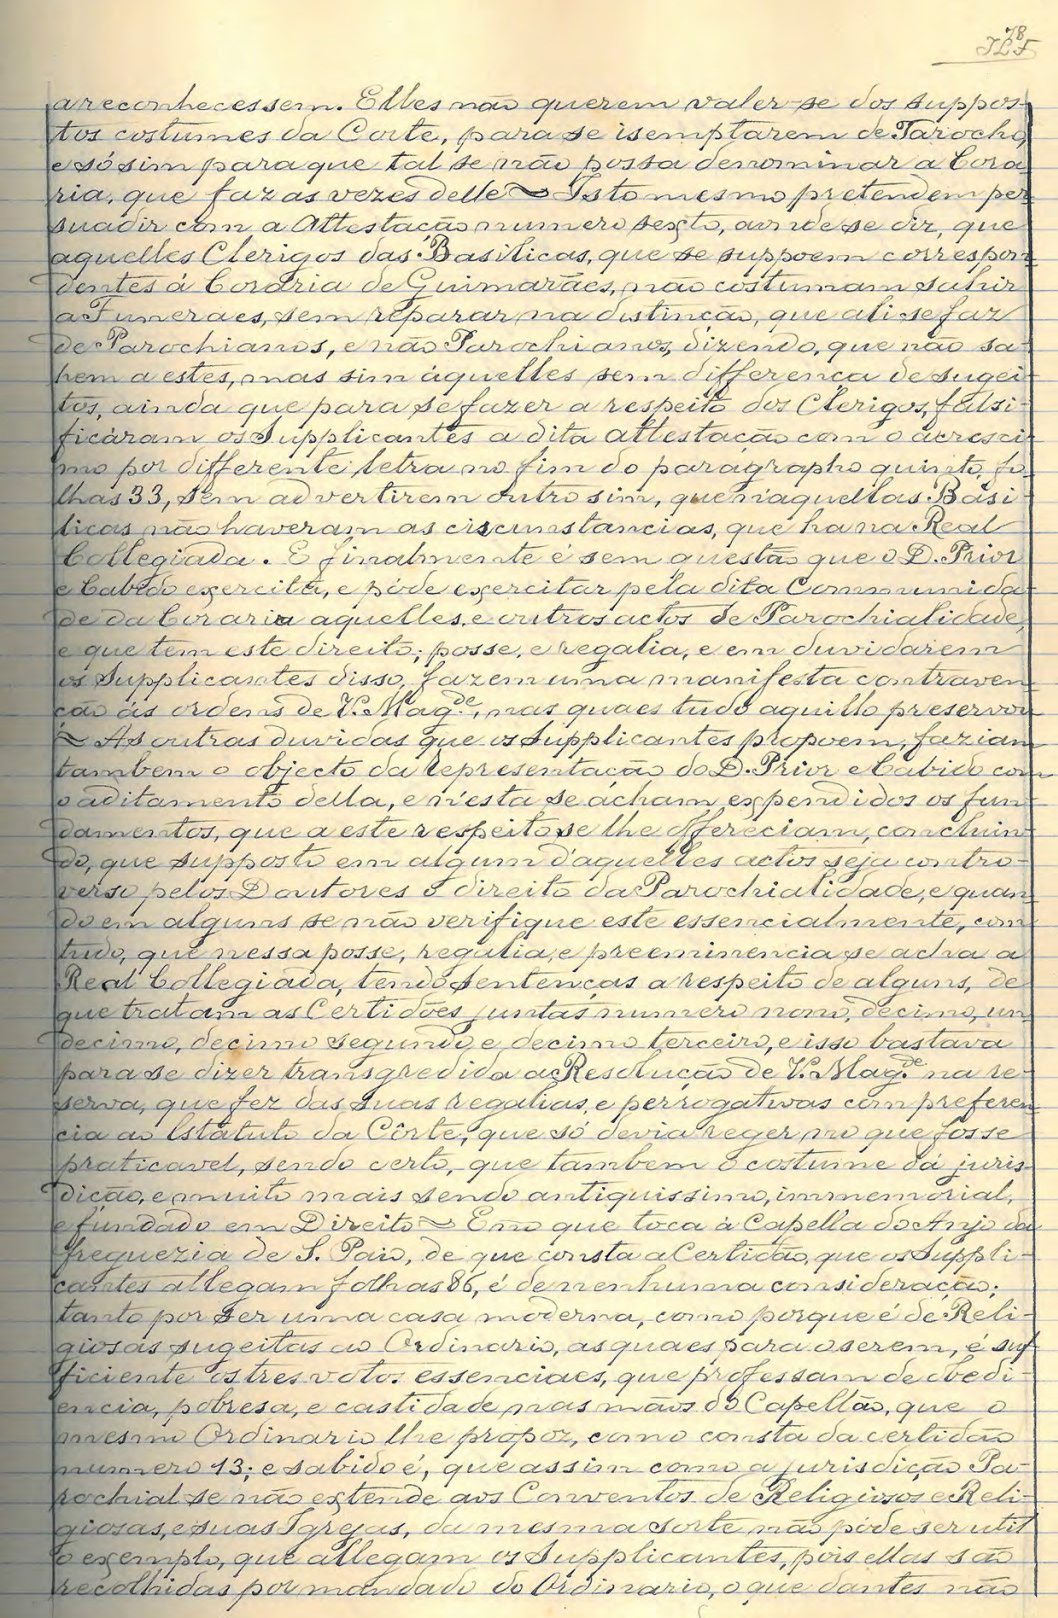 78
JLF
a reconhecessem. Elles não querem valer-se dos suppos-
tos costumes da Corte, para se isemptarem de Parocho,
e só sim para que tal se não possa denominar a Cora-
ria, que faz as vezes delle ~ Isto mesmo pretendem per
suadir com a Attestação numero sexto, aonde se diz, que
aquelles Clerigos das Basilicas, que se suppoem correspon
dentes á Coraria de Guimarães, não costumam sahir
a Funeraes, sem reparar na distincão, que ali se faz
de Parochianos, e não Parochianos, dizendo, que não sa-
hem a estes, mas sim áquelles sem differença de sugei-
tos, ainda que para se fazer a respeito dos Clerigos, falsi-
ficáram os Supplicantes a dita attestação com o acresci-
mo por differente letra no fim do paragrapho quinto, fo-
lhas 33, sem advertirem outro sim, que n'aquellas Basi-
licas não haveram as circumstancias, que ha na Real
Collegiada. E finalmente é sem questão que o D. Prior
e Cabido exercita, e póde exercitar pela dita Communida-
de da Coraria aquelles, e outros actos de Parochialidade,
e que tem este direito, posse, e regalia, e em duvidarem
os Supplicantes disso, fazem uma manifesta contraven
ção ás ordens de V. Mag.de, nas quaes tudo aquillo preservou
~ As outras duvidas que os Supplicantes propoem, faziam
tambem o objecto da representacão do D. Prior e Cabido com
o aditamento della, e n'esta se ácham expendidos os fun-
damentos, que a este respeito se lhe offereciam, concluin-
do, que supposto em algum d'aquelles actos seja contro-
verso pelos Doutores o direito da Parochialidade, e quan
do em alguns se não verifique este essencialmente, com
tudo, que nessa posse, regalia, e preeminencia se acha a
Real Collegiada, tendo sentenças a respeito de alguns, de
que tratam as Certidões juntas numero nono, decimo, un
decimo, decimo segundo e decimo terceiro, e isso bastava
para se dizer transgredida a Resolução de V. Mag.de na re-
serva, que fez das suas regalias, e perrogativas com preferen
cia ao Estatuto da Côrte, que só devia reger no que fosse
praticavel, sendo certo, que tambem o costume dá juris-
dição, e muito mais sendo antiquissimo, immemorial,
e fundado em Direito ~ E no que toca á Capella do Anjo da
freguezia de S. Paio, de que consta a Certidão, que os Suppli-
cantes allegam folhas 86, é de nenhuma consideração;
tanto por ser uma casa moderna, como porque é de Reli-
giosas sugeitas ao Ordinario, as quaes para o serem, é suf
ficiente os tres votos essenciaes, que professam de obedi-
encia, pobresa, e castidade nas mãos do Capellão, que o
mesmo Ordinario lhe propoz, como consta da certidão
numero 13; e sabido é, que assim como a jurisdição Pa-
rochial se não extende aos Conventos de Religiosos e Reli-
giosas, e suas Igrejas, da mesma sorte não póde ser util
o exemplo, que allegam os Supplicantes, pois ellas são
recolhidas por mandado do Ordinario, o que dantes não